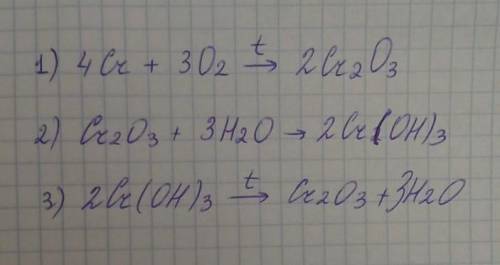 1) 4Cr + 3O₂ →ᵗ 2Cr₂O₃
2) Cr₂O₃ + 3H₂O → 2Cr(OH)₃
3) 2Cr(OH)₃ →ᵗ Cr₂O₃ + 3H₂O